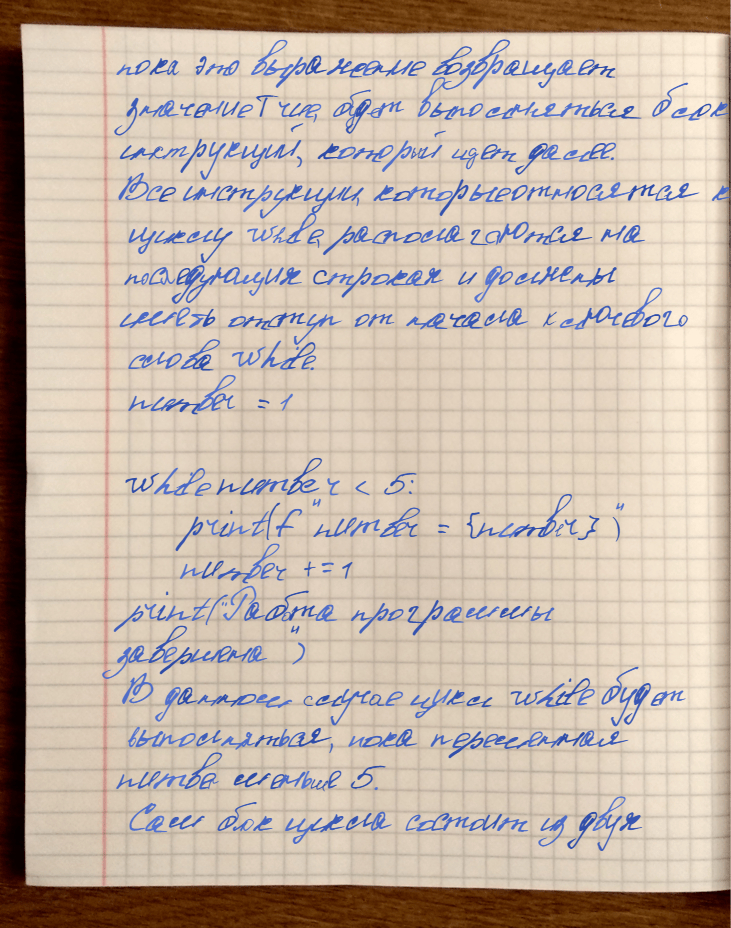 пока это выражение возвращает
значение True, будет выполняться блок
инструкций, который идет далее.
Все инструкции, которые относятся к
циклу while, располагаются на
последующих строках и должны
иметь отступ от начала ключевого
слова while.
number = 1
while number < 5:
print(f "number = {number}")
number += 1
print("Работа программы
завершена")
В данном случае цикл while будет
выполняться, пока переменная
numbe меньше 5.
Сам блок цикла состоит из двух